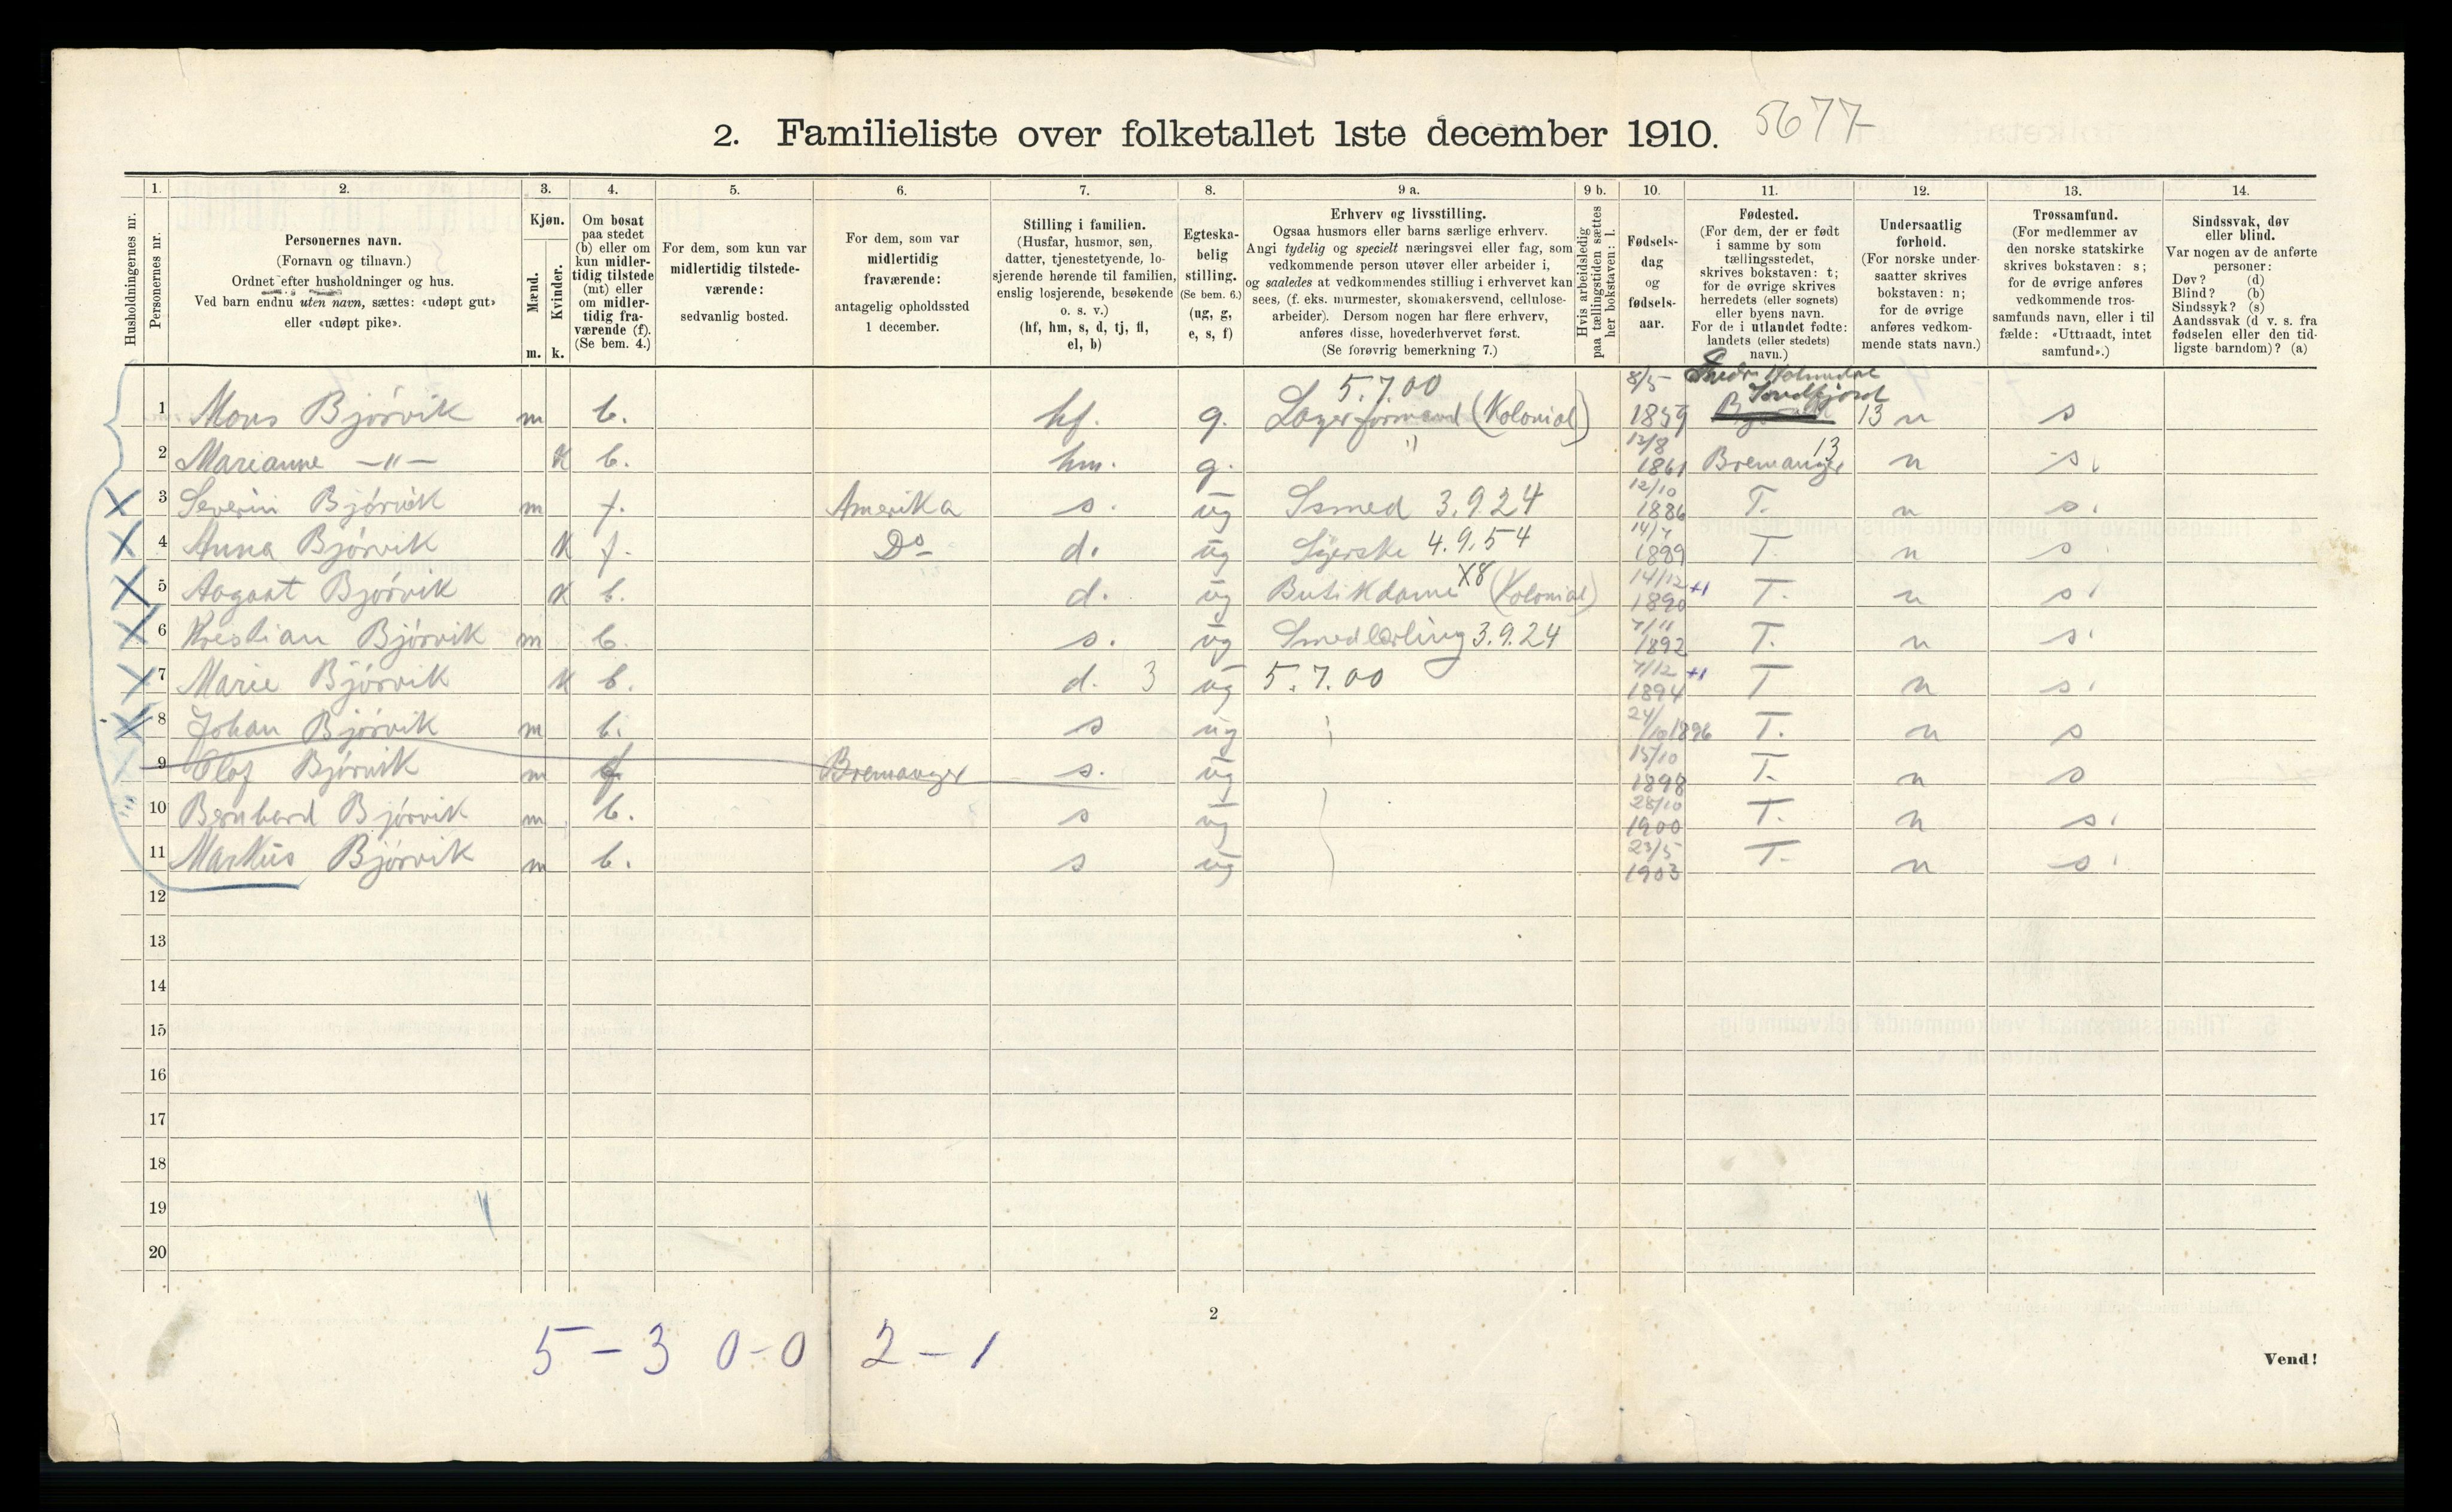 2. Familieliste over folketallet 1ste december 1910. 5677
1. 2. 3. 4. 5. 6. 7. 8. 9 a. 9 b. 10. 11. 12. 13. 14.
Husholdningernes nr.
Personernes nr.
Personernes navn.
(Fornavn og tilnavn.)
Ordnet efter husholdninger og hus.
Ved barn endnu uten navn, sættes: «udøpt gut»
eller «udøpt pike».
Kjøn.
Mænd.
Kvinder.
m. k.
Om bosat
paa stedet
(b) eller om
kun midler-
tidig tilstede
(mt) eller
om midler-
tidig fra-
værende (f).
(Se bem. 4.)
For dem, som kun var
midlertidig tilstede-
værende:
sedvanlig bosted.
For dem, som var
midlertidig
fraværende:
antagelig opholdssted
1 december.
Stilling i familien.
(Husfar, husmor, søn,
datter, tjenestetyende, lo-
sjerende hørende til familien,
enslig losjerende, besøkende
o. s. v.)
(hf, hm, s, d, tj, fl,
el, b)
Egteska-
belig
stilling.
(Se bem. 6.)
(ug, g,
e, s, f)
Erhverv og livsstilling.
Ogsaa husmors eller barns særlige erhverv.
Angi tydelig og specielt næringsvei eller fag, som
vedkommende person utøver eller arbeider i,
og saaledes at vedkommendes stilling i erhvervet kan
sees, (f. eks. murmester, skomakersvend, cellulose-
arbeider). Dersom nogen har flere erhverv,
anføres disse, hovederhvervet først.
(Se forøvrig bemerkning 7.)
Hvis arbeidsledig
paa tællingstiden sættes
her bokstaven: l.
Fødsels-
dag
og
fødsels-
aar.
Fødested.
(For dem, der er født
i samme by som
tællingsstedet,
skrives bokstaven: t;
for de øvrige skrives
herredets (eller sognets)
eller byens navn.
For de i utlandet fødte:
landets (eller stedets)
navn.)
Undersaatlig
forhold.
(For norske under-
saatter skrives
bokstaven: n;
for de øvrige
anføres vedkom-
mende stats navn.)
Trossamfund.
(For medlemmer av
den norske statskirke
skrives bokstaven: s;
for de øvrige anføres
vedkommende tros-
samfunds navn, eller i til
fælde: «Uttraadt, intet
samfund».)
Sindssvak, døv
eller blind.
Var nogen av de anførte
personer:
Døv? (d)
Blind? (b)
Sindssyk? (s)
Aandssvak (d v. s. fra
fødselen eller den tid-
ligste barndom)? (a)
5.7.00 8/5 Søndfjord
1 Mons Bjørvik m b. hf. g. Lagerformand (Kolonial) 1859 13 n s
2 Marianne —"— K b. hm. g. " 12/8 1861 Bremanger 13 n s.
3 Severin Bjørvik m f. Amerika s. ug Smed 3.9.24 12/10 1886 T. n s.
4 Anna Bjørvik K f. Do d. ug Syerske 4.9.54 14/7 1889 T. n s
5 Aagaat Bjørvik K b. d. ug Butikdame X8 (Kolonial) 14/12 1890 +1 T. n s
6 Krestian Bjørvik m b. s. ug Smedlærling 3.9.24 7/11 1892 T. n s.
7 Marie Bjørvik K b. d. 3 ug 5.7.00 7/12 1894 +1 T n s.
8 Johan Bjørvik m b. s ug 24/10 1896 T. n s
9 Olaf Bjørvik m f Bremanger s. ug 15/10 1898 T. n s
10 Bernhard Bjørvik m b. s ug 28/10 1900 T. n s.
11 Markus Bjørvik m b. s ug 23/5 1903 T. n s
12
13
14
15
16
17
18
19
20
2
5 - 3 0 - 0 2 - 1
Vend!